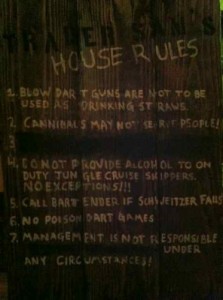 TRADER SAM'S
HOUSE RULES
1. BLOW DART GUNS ARE NOT TO BE
USED AS DRINKING STRAWS
2. CANNIBALS MAY NOT PEOPLE!
3
4. DO NOT PROVIDE ALCOHOL TO ON
DUTY JUNGLE CRUISE SKIPPERS.
NO EXCEPTIONS!!!
5. CALL BARTENDER IF SCHWEITZER FALLS
6. NO POISON DART GAMES
7. MANAGEMENT IS NOT RESPONSIBLE
UNDER
ANY CIRCUMSTANCES!